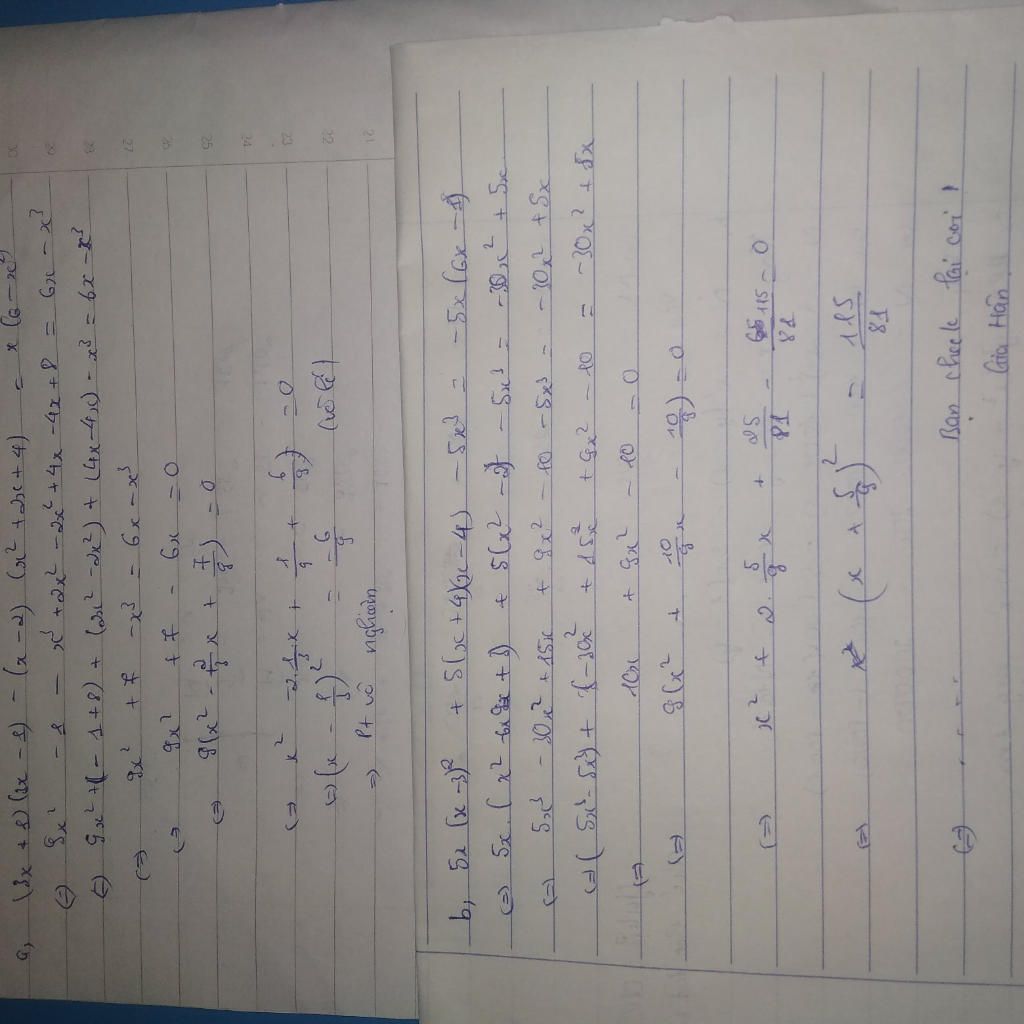 a, (3x + 1)(3x - 1) - (x - 2)(x² + 2x + 4) = x(6 - x²)
(=) 9x² - 1 - x³ + 2x² - 2x² + 4x - 4x + 8 = 6x - x³
(=) 9x² + (-1 + 8) + (2x² - 2x²) + (4x - 4x) - x³ = 6x - x³
(=) 9x² + 7 - x³ = 6x - x³
(=) 9x² + 7 - 6x = 0
(=) 9(x² - 2/3 x + 7/9) = 0
(=) x² - 2.1/3.x + 1/9 + 6/9) = 0
(=) (x - 1/3)² = -6/9 (vô lí)
=) Pt vô nghiệm
b, 5x(x - 3)² + 5(x + 4)(x - 4) - 5x³ = -5x(6x - 1)
(=) 5x.(x² - 6x + 3) + 5(x² - 2) - 5x³ = -30x² + 5x
(=) 5x³ - 30x² + 15x + 9x² - 10 - 5x³ = -30x² + 5x
(=) (5x³ - 5x³) + (-30x² + 15x + 9x² - 10 = -30x² + 5x
(=) 10x + 9x² - 10 = 0
(=) 9(x² + 10/9 x - 10/9) = 0
(=) x² + 2.5/9 x + 25/81 - 115/81 = 0
(=) (x + 5/9)² = 115/81
(=) ..... Bạn check lại coi !
của Hân
21
22
23
24
25
26
27
28
29
30